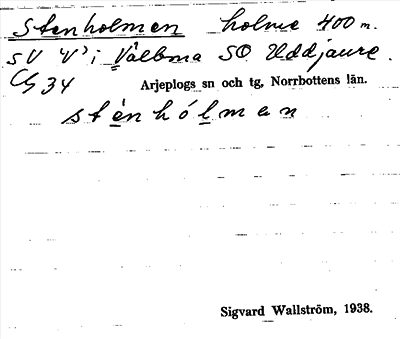 Stenholmen holme 400 m.
SV "V" i Välbma SO Uddjaure.
Cg 34 Arjeplogs sn och tg, Norrbottens län.
sténhólman
Sigvard Wallström, 1938.